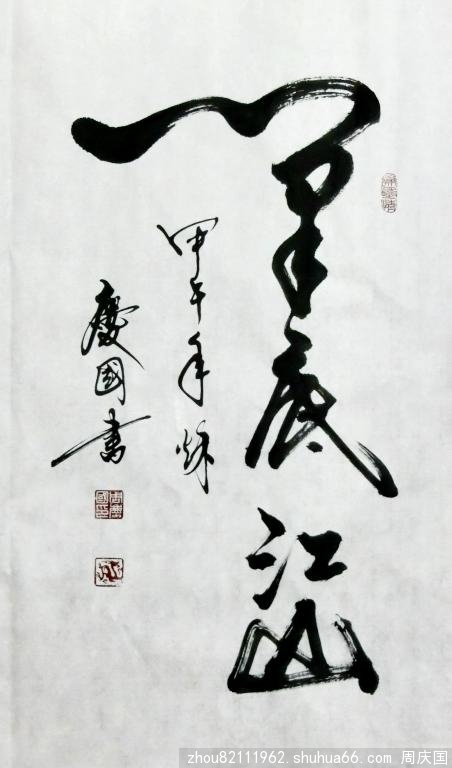 筆底江山
甲午年秋
慶國書
周慶國印
zhou82111962.shuhua66.com 周庆国